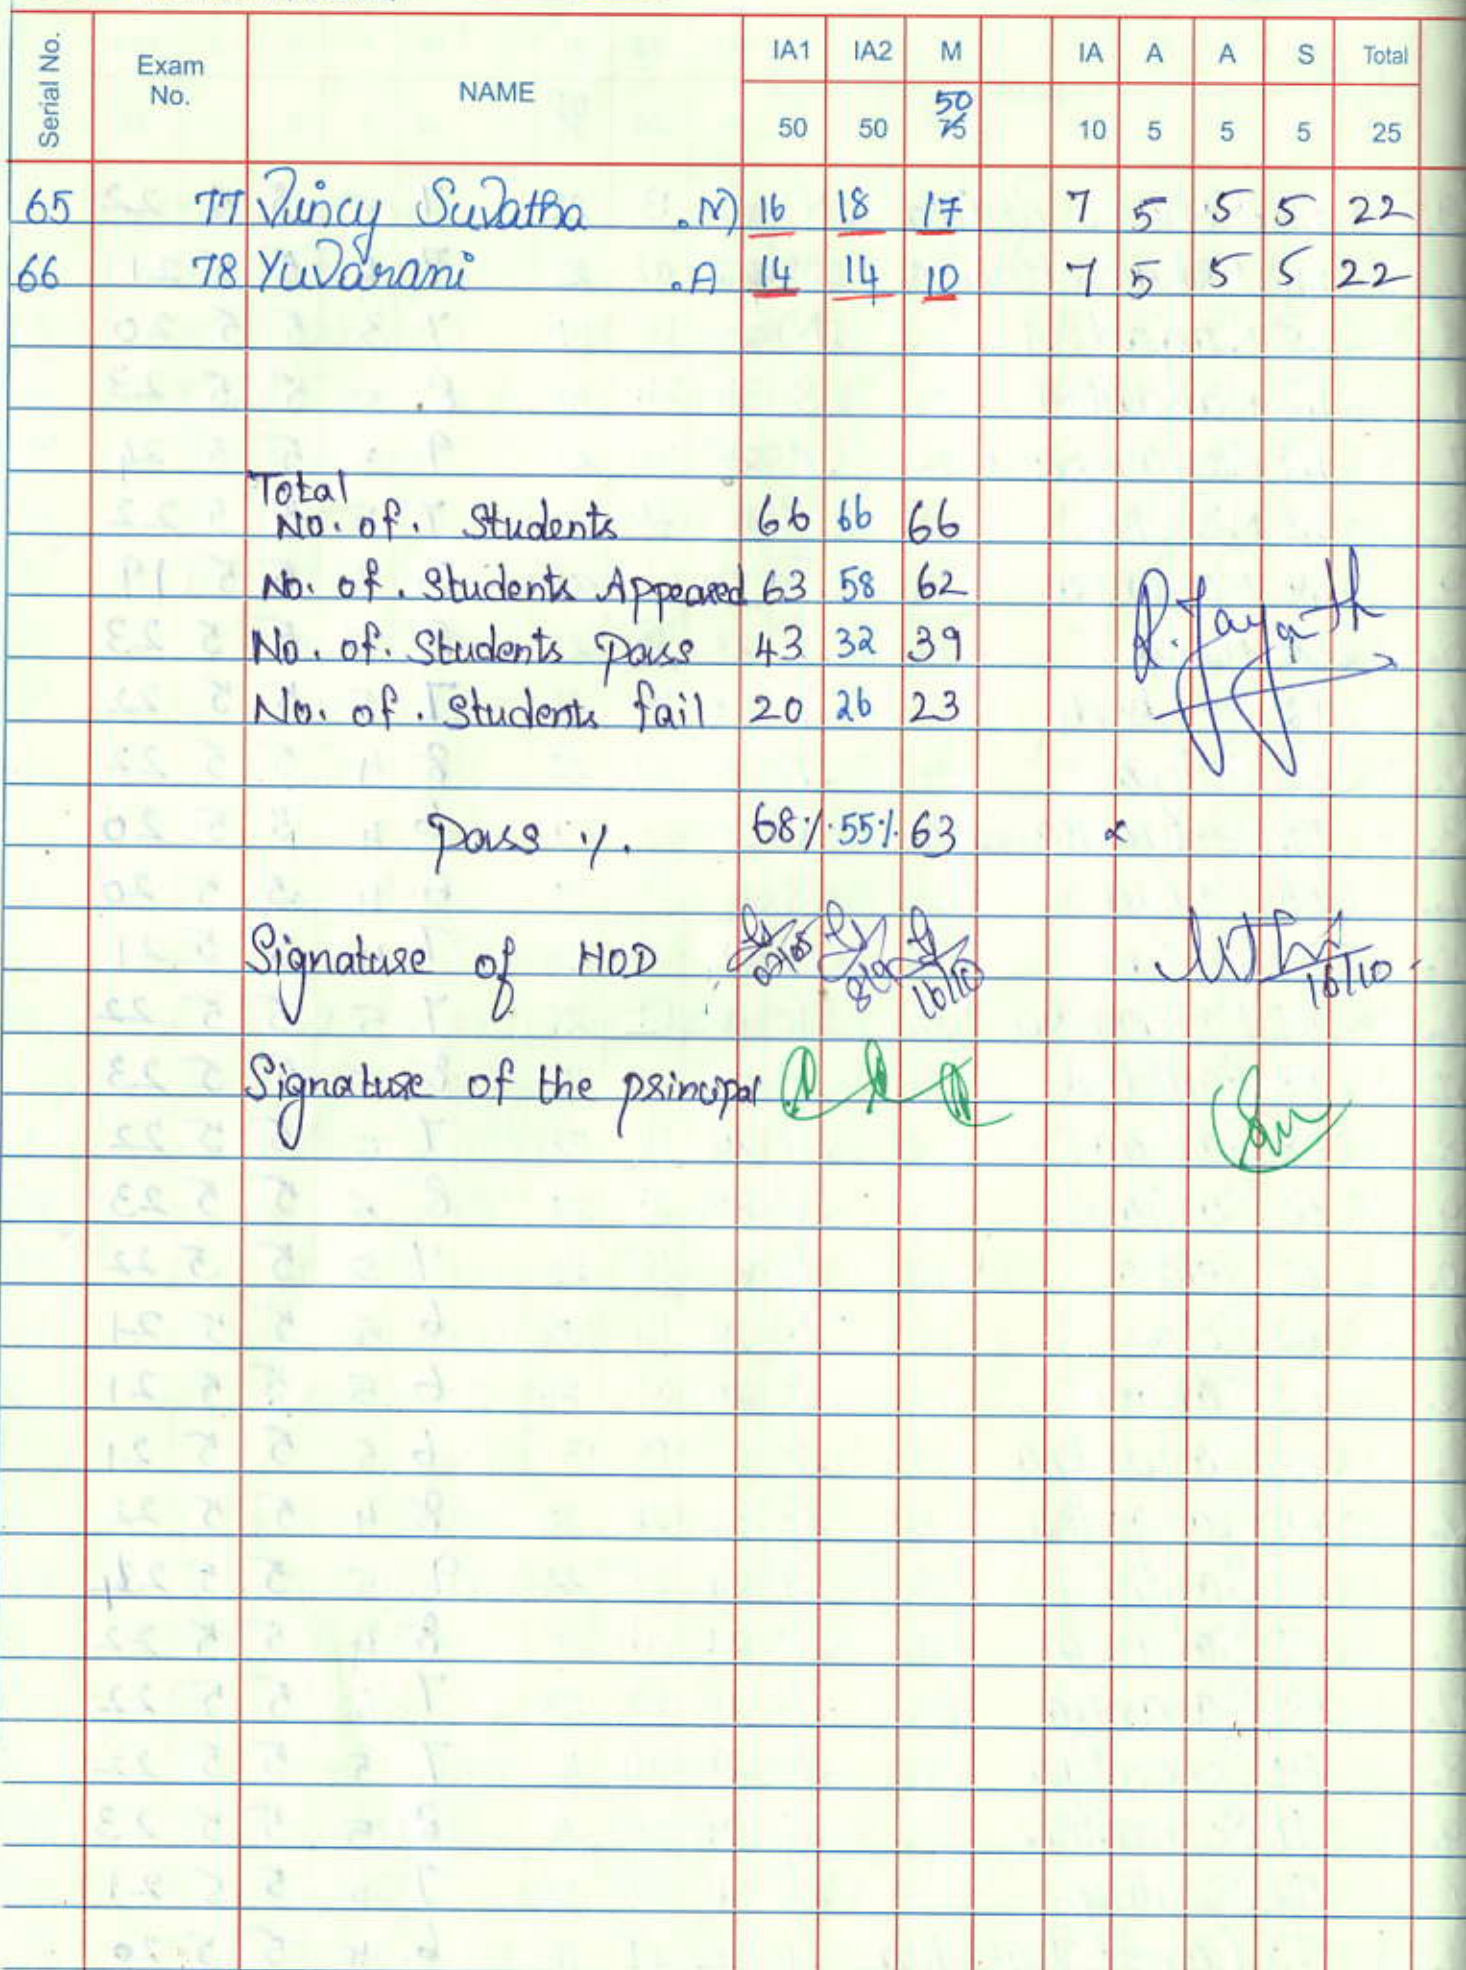 Serial No. Exam No. NAME IA1 IA2 M IA A A S Total
50 50 50 75 10 5 5 5 25
65 77 Vincy Suvatha .N) 16 18 17 7 5 5 5 22
66 78 Yuvarani .A 14 14 10 7 5 5 5 22
Total
No. of. Students 66 66 66
No. of. Students Appeared 63 58 62
No. of. Students Pass 43 32 39
No. of. Students fail 20 26 23
Pass %. 68% 55% 63
Signature of HOD 16/10 16/10
Signature of the principal